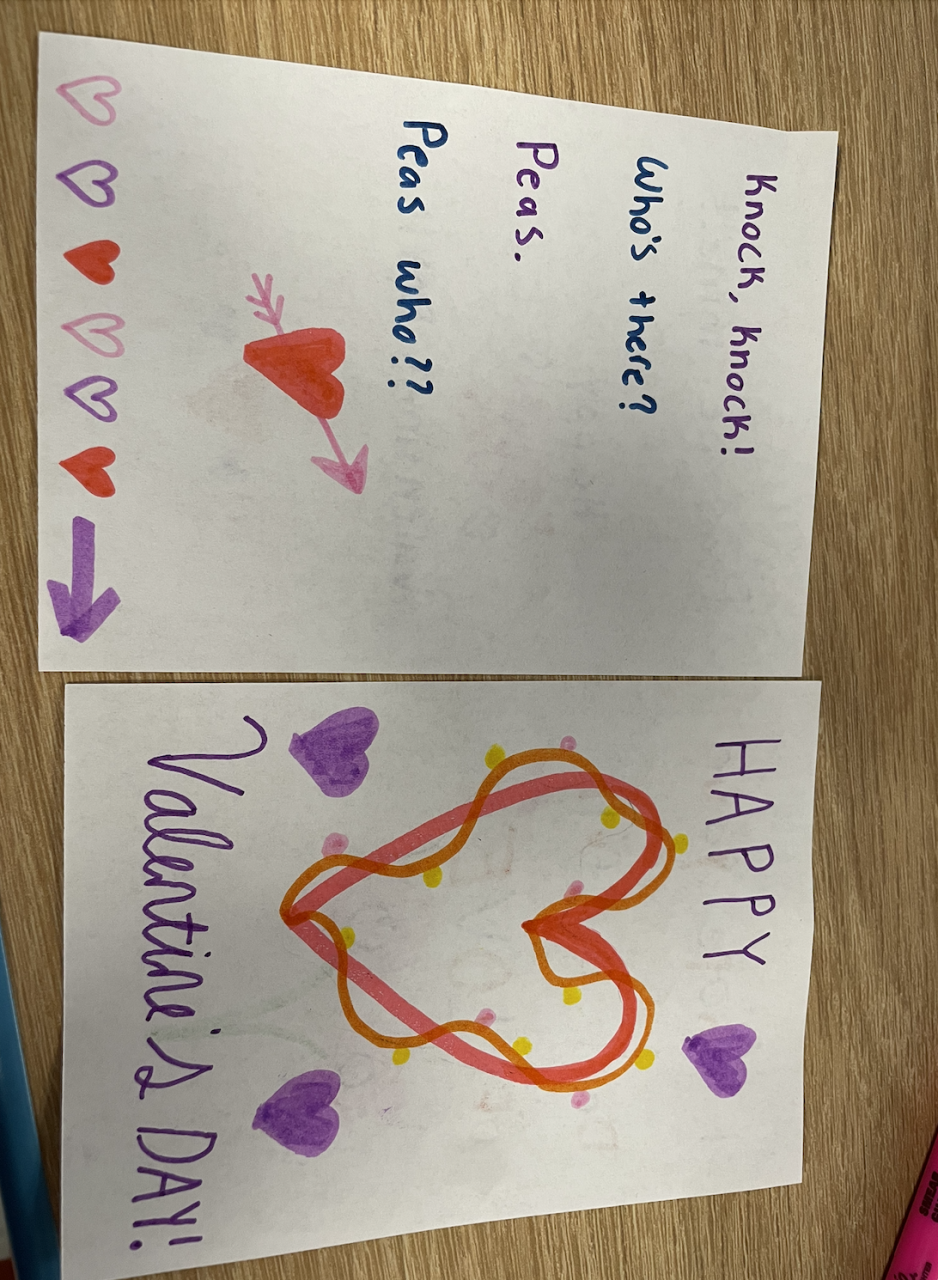 Knock, Knock!
Who's there?
Peas.
Peas who??
HAPPY
Valentine's DAY!